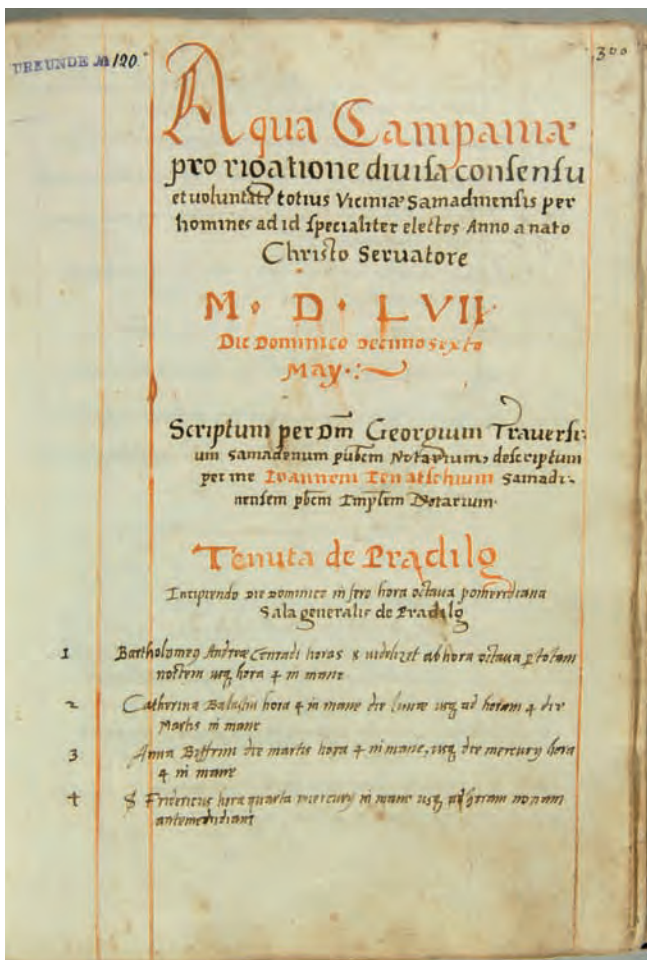 URKUNDE № 120.
300
Aqua Campaniæ
pro rigatione diuisa consensu
et uoluntate totius Viciniæ Samadinensis per
homines ad id specialiter electos Anno a nato
Christo Seruatore
M. D. LVII
Die Dominico decimo sexto
May.
Scriptum per Dm̄ Georgium Trauersi-
um samadenum publ̄cm Notarium, descriptum
per me Ioannem Ienatschium Samadi-
nensem pbcm Imp̄lem Notarium.
Tenuta de Pradilg
Incipiendo die dominico in sero hora octaua pomeridiana
Sala generalis de Pradilg
1 Bartholomeg Andreæ Conradi horas 8 uidelizet ab hora octaua p totam
noctem usq hora 4 in mane
2 Catherina hora 4 in mane die lunæ usq ad horam 4 die
Martis in mane
3 Anna Biffrun die martis hora 4 in mane, usq die mercury hora
4 in mane
4 S Fridericus hora quarta mercury in mane usq ad horam nonam
antemeridianã